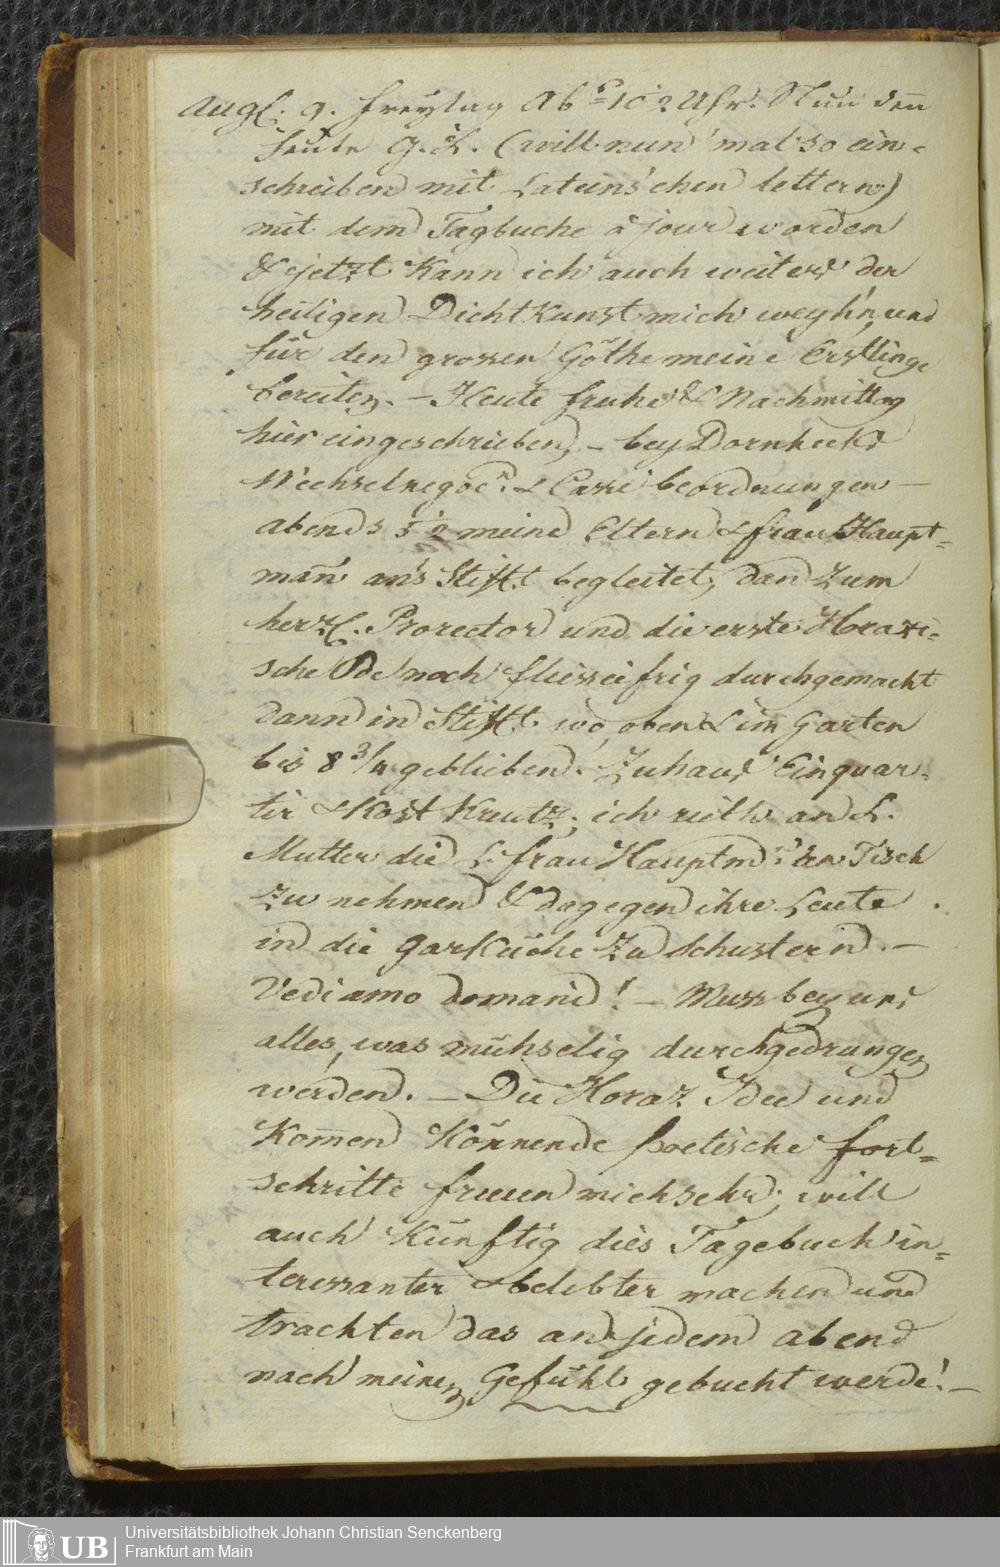 Augs. 9. Freytag Ab. 10½ Uhr. Nun denn
heute G. L. (will nun 'mal so ein-
schreiben mit Latein'schen lettern)
mit dem Tagbuche à jour worden
& jetzt kann ich auch weiter der
heiligen Dichtkunst mich weyh'n, und
für den grossen Göthe meine Erstlinge
bereiten. – Heute fruhe & Nachmittag
hier eingeschrieben, – bey Dornheck
Wechselnegoc. & Cassé beordnungen –
abends 5½ meine Eltern & frau Haupt-
mañ an's Stift begleitet, dan zum
herzl. Prorector und die erste Horazi-
sche Ode noch fleisseifrig durchgemacht
dann in Stift wo oben & im Garten
bis 8¾ geblieben. Zuhaus Einquar-
tir & Kost Kreutz; ich rieth an L.
Mutter die L. frau Hauptm. an Tisch
zu nehmen & dagegen ihre Leute
in die Garküche zu schustern. –
Vediamo domani! – Muss bey uns
alles, was mühselig durchgedrungen
werden. – Die Horaz Idee und
kom̄en könnende poetische fort-
schritte freuen mich sehr; will
auch künftig dies Tagebuch in-
teressanter & belebter machen und
trachten das an jedem abend
nach meinen Gefühl gebucht werde! –
UB Universitätsbibliothek Johann Christian Senckenberg
Frankfurt am Main